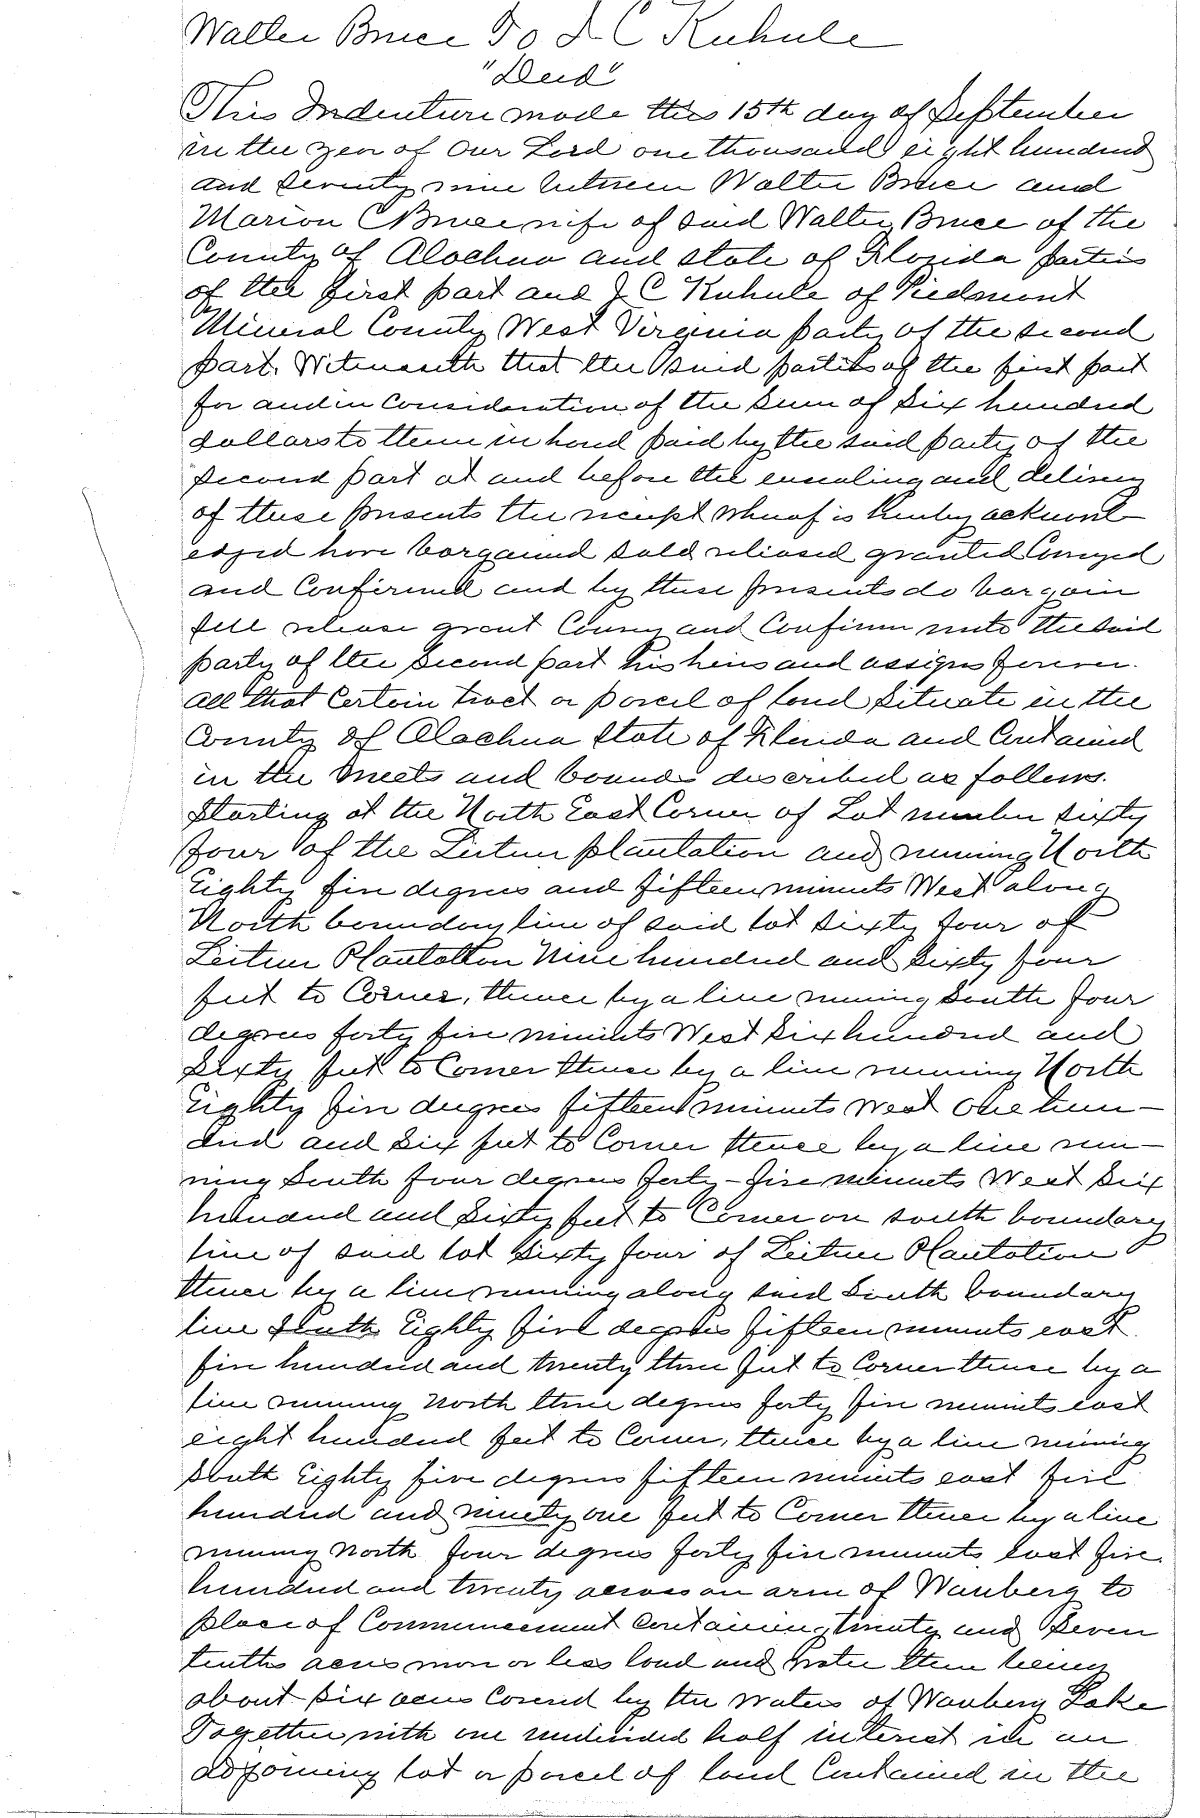 Walter Bruce To J. C Kuhnle
"Deed"
This Indenture made this 15th day of September
in the year of Our Lord one thousand eight hundred
and seventy nine between Walter Bruce and
Marion C Bruce wife of said Walter Bruce of the
County of Alachua and state of Florida parties
of the first part and J C Kuhnle of Piedmont
Mineral County West Virginia party of the second
part. Witnesseth that the said parties of the first part
for and in Consideration of the Sum of Six hundred
dollars to them in hand paid by the said party of the
second part at and before the ensealing and delivery
of these presents the receipt whereof is hereby acknowl-
edged have bargained sold released granted Conveyed
and Confirmed and by these presents do bargain
sell release grant Convey and Confirm unto the said
party of the second part his heirs and assigns forever.
all that Certain tract or parcel of land Situate in the
County of Alachua State of Florida and Contained
in the meets and bounds described as follows.
Starting at the North East Corner of Lot number sixty
four of the Leitner plantation and running North
Eighty five degrees and fifteen minuts West along
North boundary line of said lot sixty four of
Leitner Plantation Nine hundred and Sixty four
feet to Corner, thence by a line running South four
degrees forty five minuts West Six hundred and
Sixty feet to Corner thence by a line running North
Eighty five degrees fifteen minuts West One hun-
dred and Six feet to Corner thence by a line run-
ning South four degrees forty-five minuets West Six
hundred and Sixty feet to Corner on south boundary
line of said lot Sixty four of Leitner Plantation
thence by a line running along said South boundary
line South Eighty five degrees fifteen minuts east.
five hundred and twenty three feet to Corner thence by a
line running North three degrees forty five minuts east
eight hundred feet to Corner, thence by a line running
South Eighty five degrees fifteen minuts east five
hundred and ninety one feet to Corner thence by a line
running North four degrees forty five minuts east five
hundred and twenty across an arm of Wauberg to
place of Commencement containing twenty and Seven
tenths acres more or less land and water there being
about Six acres Covered by the waters of Wauberg Lake
Together with one undivided half interest in an
adjoining lot or parcel of land Contained in the